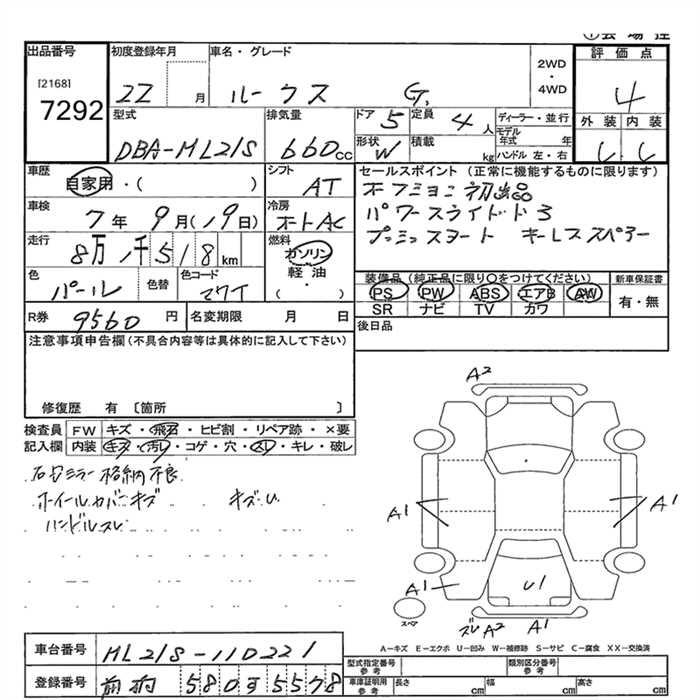 出品番号
[2168]
7292
初度登録年月
22 月
車名・グレード
ルークス G
2WD
・
4WD
評価点
4
型式
DBA-ML21S
排気量
660 CC
ドア 5
定員 4 人
ディーラー・並行
モデル年式 年
形状 W
積載 kg
ハンドル 左・右
外装 内装
車歴
自家用・( )
シフト
AT
セールスポイント(正常に機能するものに限ります)
初出品
パワースライドドア
プッシュスタート キーレススペアー
車検
7年 9月(19日)
冷房
オートAC
走行
8万1千518km
燃料
ガソリン
軽油
( )
色
パール
色替
色コード
装備品(純正品に限り○をつけてください)
新車保証書
PS PW ABS エアB AW
SR ナビ TV カワ
有・無
R券 9560 円
名変期限 月 日
後日品
注意事項申告欄(不具合内容等は具体的に記入して下さい)
修復歴 有 〔箇所 〕
検査員
記入欄
FW キズ・飛石・ヒビ割・リペア跡・×要
内装 キズ・汚レ・コゲ・穴・スレ・キレ・破レ
右ミラー格納不良
ホイールカバーキズ キズU
ハンドルスレ
A2
A1
A1
A1
U1
スペア
ズレ A2 A1
A-キズ E-エクボ U-凹み W-補修跡 S-サビ C-腐食 XX-交換済
車台番号
ML21S-110221
登録番号
580 す 5578
型式指定番号
参考
類別区分番号
参考
車庫証明用
参考
長さ cm 幅 cm 高さ cm